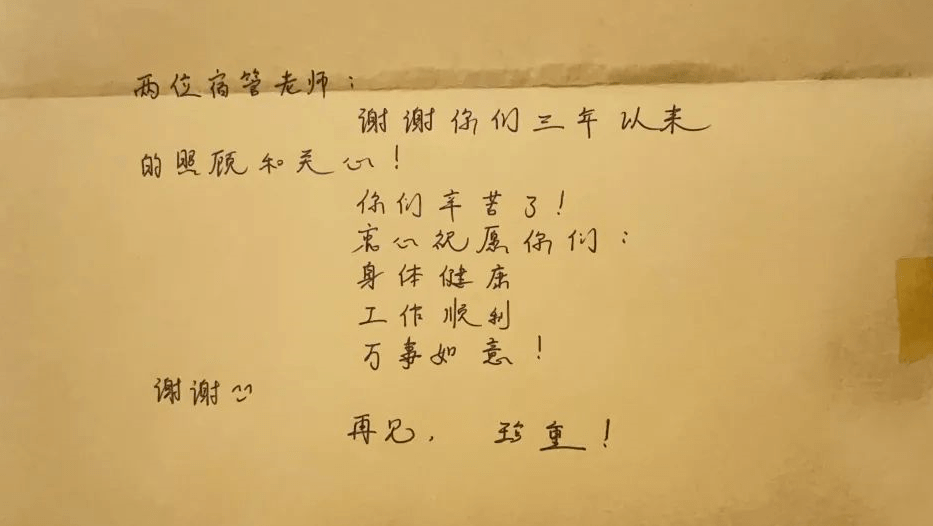 两位宿管老师：
谢谢你们三年以来
的照顾和关心！
你们辛苦了！
衷心祝愿你们：
身体健康
工作顺利
万事如意！
谢谢
再见，珍重！